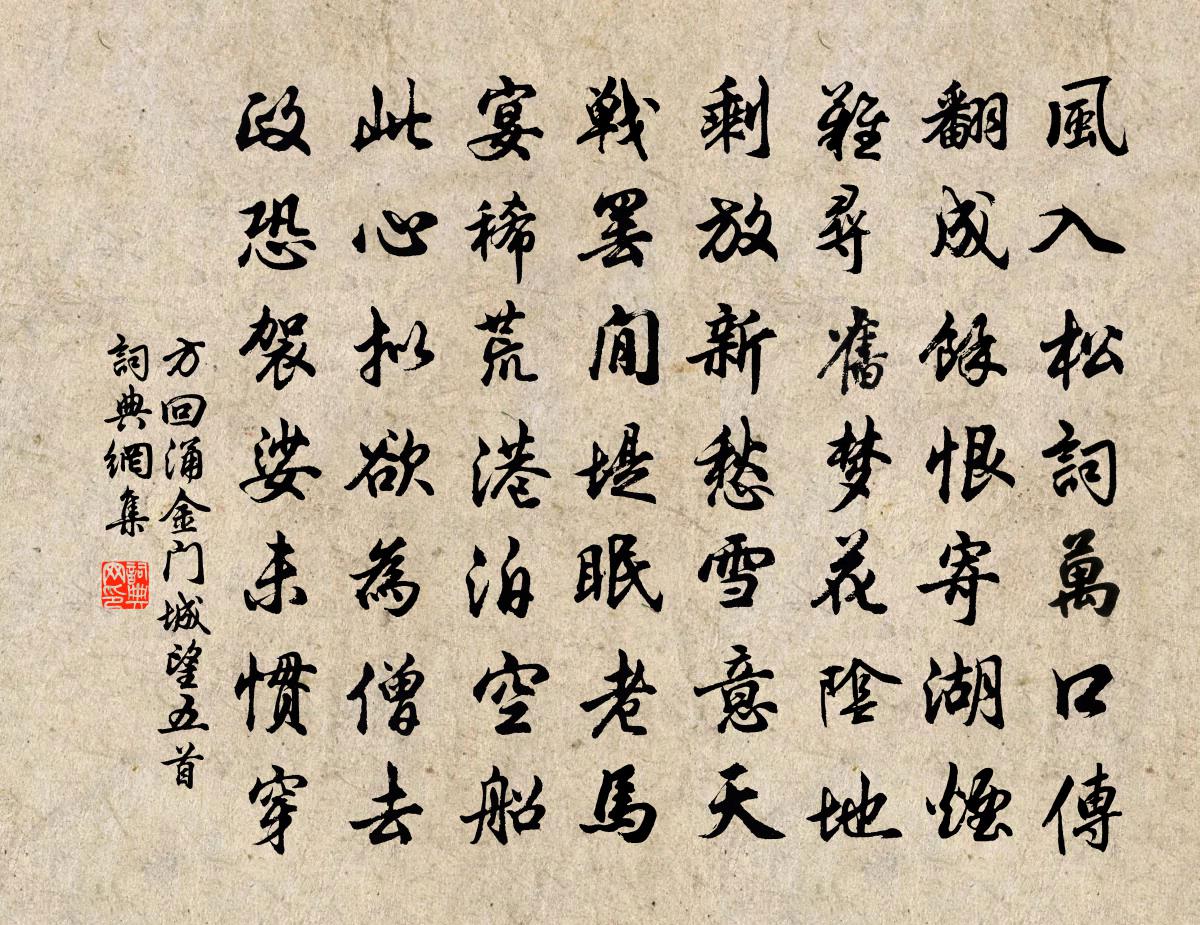 風入松詞萬口傳
翻成餘恨寄湖煙
難尋舊梦花陰地
剩放新愁雪意天
戰罢閒堤眠老馬
宴稀荒港泊空船
此心拟欲為僧去
政恐袈裟未慣穿
方回涌金门城望五首
詞典網集
詞典网印